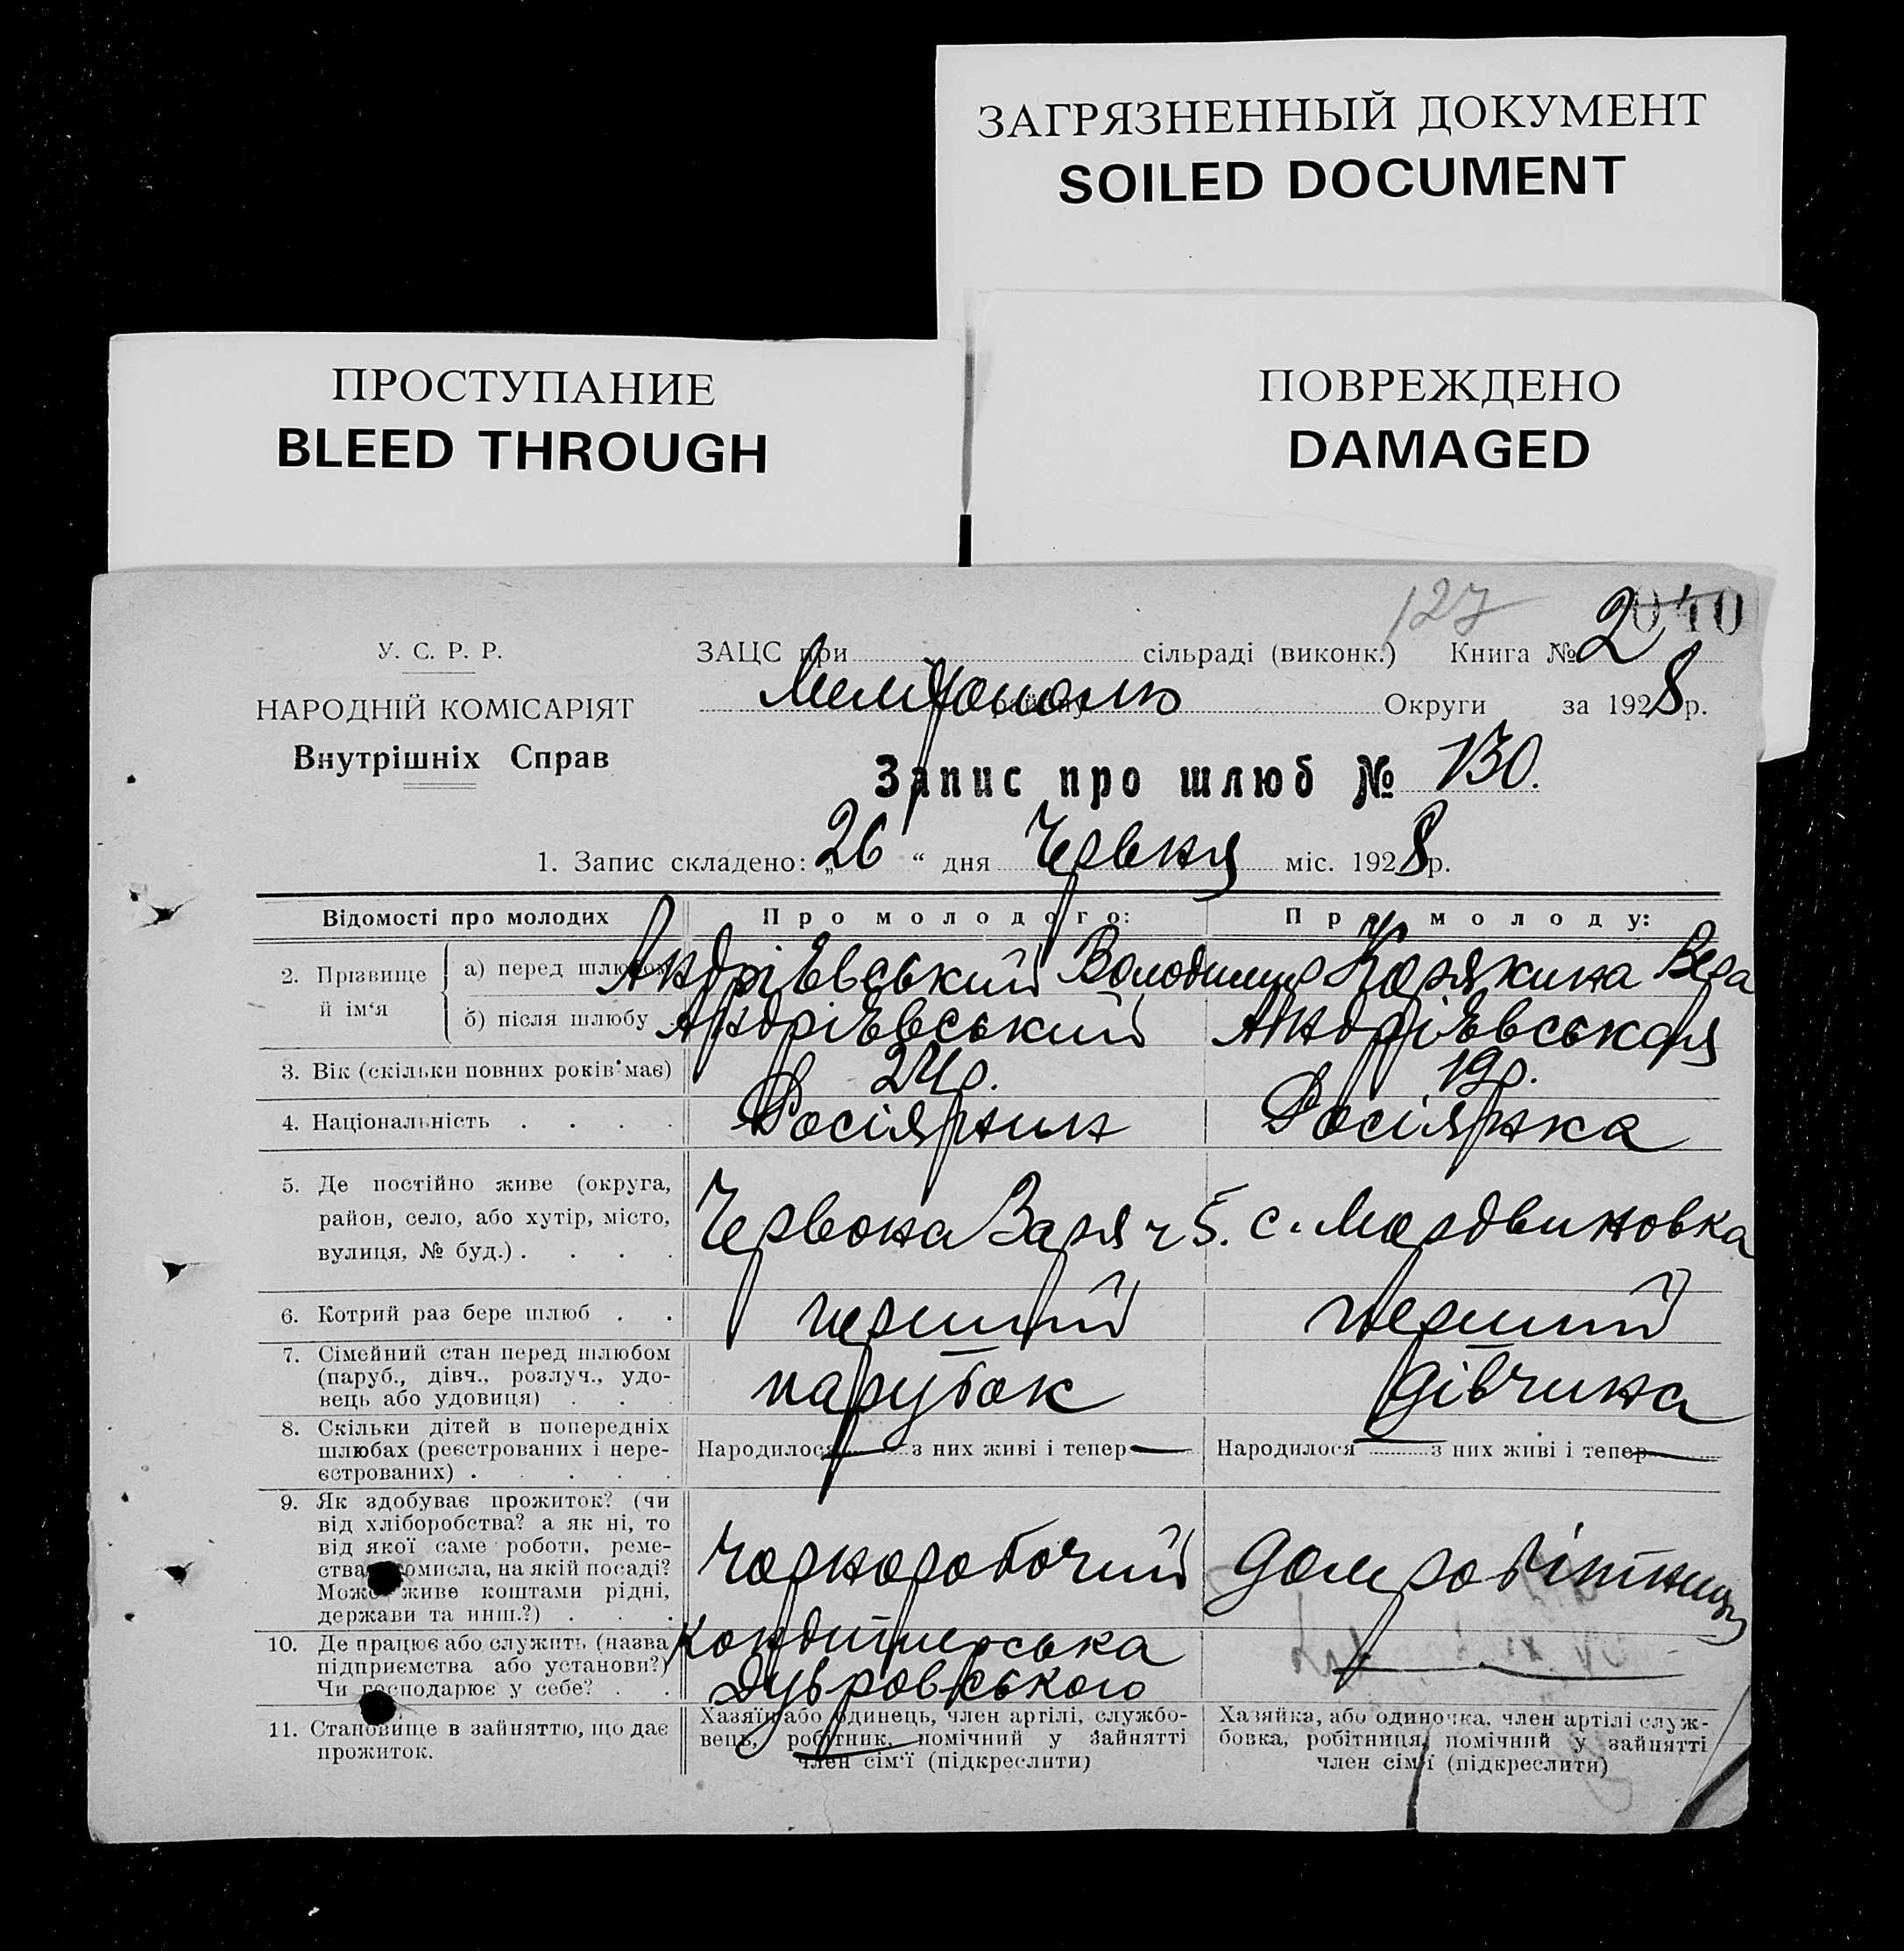 ЗАГРЯЗНЕННЫЙ ДОКУМЕНТ
SOILED DOCUMENT
ПРОСТУПАНИЕ
BLEED THROUGH
ПОВРЕЖДЕНО
DAMAGED
127
У. С. Р. Р.
НАРОДНІЙ КОМІСАРІЯТ
Внутрішніх Справ
ЗАЦС при сільраді (виконк.) Книга № 2
Мелітополь Округи за 1928 р.
Запис про шлюб № 130.
1. Запис складено: „26“ дня Червня міс. 1928 р.
Відомості про молодих
Про молодого:
Про молоду:
2. Прізвище й ім‘я
а) перед шлюбом Андрієвський Володимир Корякина Вера
б) після шлюбу Андрієвський Андрієвська
3. Вік (скільки повних років має) 24р. 19р.
4. Національність . . . . Росіянин Росіянка
5. Де постійно живе (округа,
район, село, або хутір, місто,
вулиця, № буд.) . . . .
Червона Заря ч 5. с. Мордвиновка
6. Котрий раз бере шлюб . . перший перший
7. Сімейний стан перед шлюбом
(паруб., дівч., розлуч., удо-
вець або удовиця) . . .
парубок дівчина
8. Скільки дітей в попередніх
шлюбах (реєстрованих і нере-
єстрованих) . . . . .
Народилося — з них живі і тепер —
Народилося — з них живі і тепер —
9. Як здобуває прожиток? (чи
від хліборобства? а як ні, то
від якої саме роботи, реме-
ства, промисла, на якій посаді?
Може живе коштами рідні,
держави та инш.?) . . .
Чорноробочий Домробітниця
10. Де працює або служить (назва
підприємства або установи?)
Чи господарює у себе? . .
Кондитерська
Дубровського —
11. Становище в зайняттю, що дає
прожиток.
Хазяїн або одинець, член артілі, службо-
вець, робітник, помічний у зайнятті
член сім‘ї (підкреслити)
Хазяйка, або одиночка, член артілі служ-
бовка, робітниця, помічний у зайнятті
член сім‘ї (підкреслити)